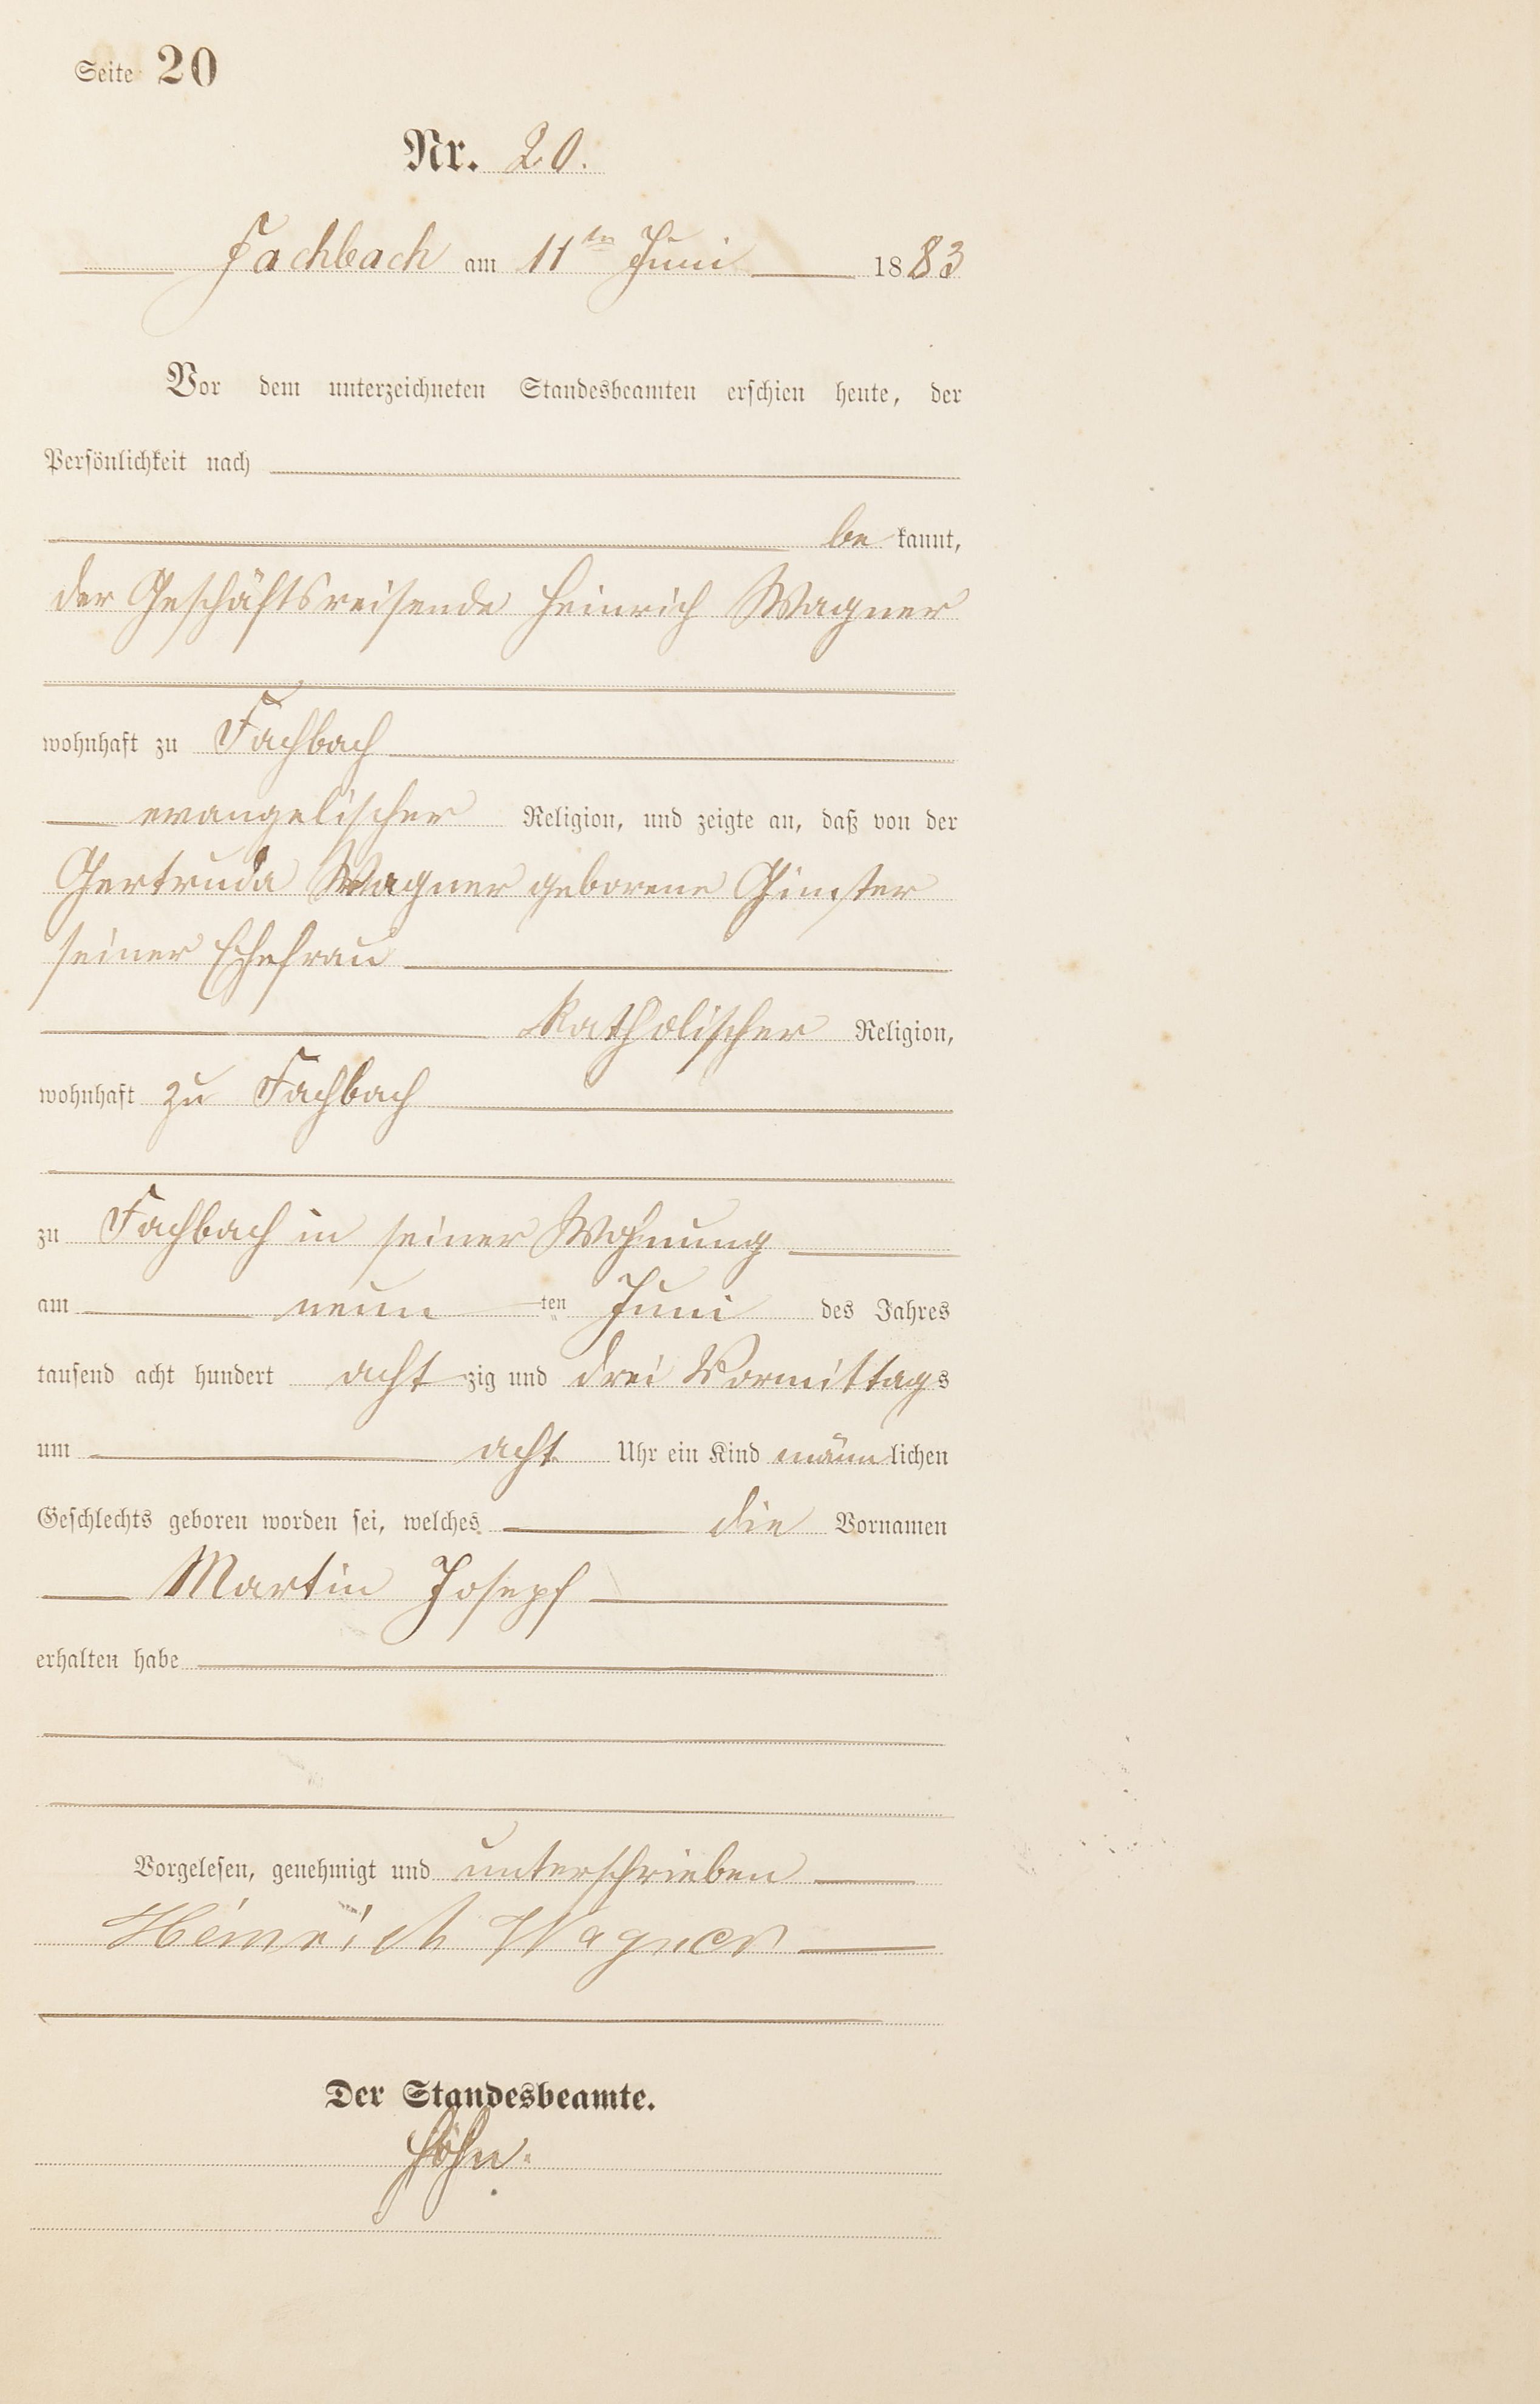 Seite 20
Nr. 20.
Fachbach am 11ten Juni 1883
Vor dem unterzeichneten Standesbeamten erschien heute, der
Persönlichkeit nach
be kannt,
der Geschäftsreisende Heinrich Wagner
wohnhaft zu Fachbach
evangelischer Religion, und zeigte an, daß von der
Gertruda Wagner geborene Ginster
seiner Ehefrau
katholischer Religion,
wohnhaft zu Fachbach
zu Fachbach in seiner Wohnung
am neun ten Juni des Jahres
tausend acht hundert acht zig und drei Vormittags
um acht Uhr ein Kind männ lichen
Geschlechts geboren worden sei, welches die Vornamen
Martin Joseph
erhalten habe
Vorgelesen, genehmigt und unterschrieben
Heinrich Wagner
Der Standesbeamte.
Höhn.